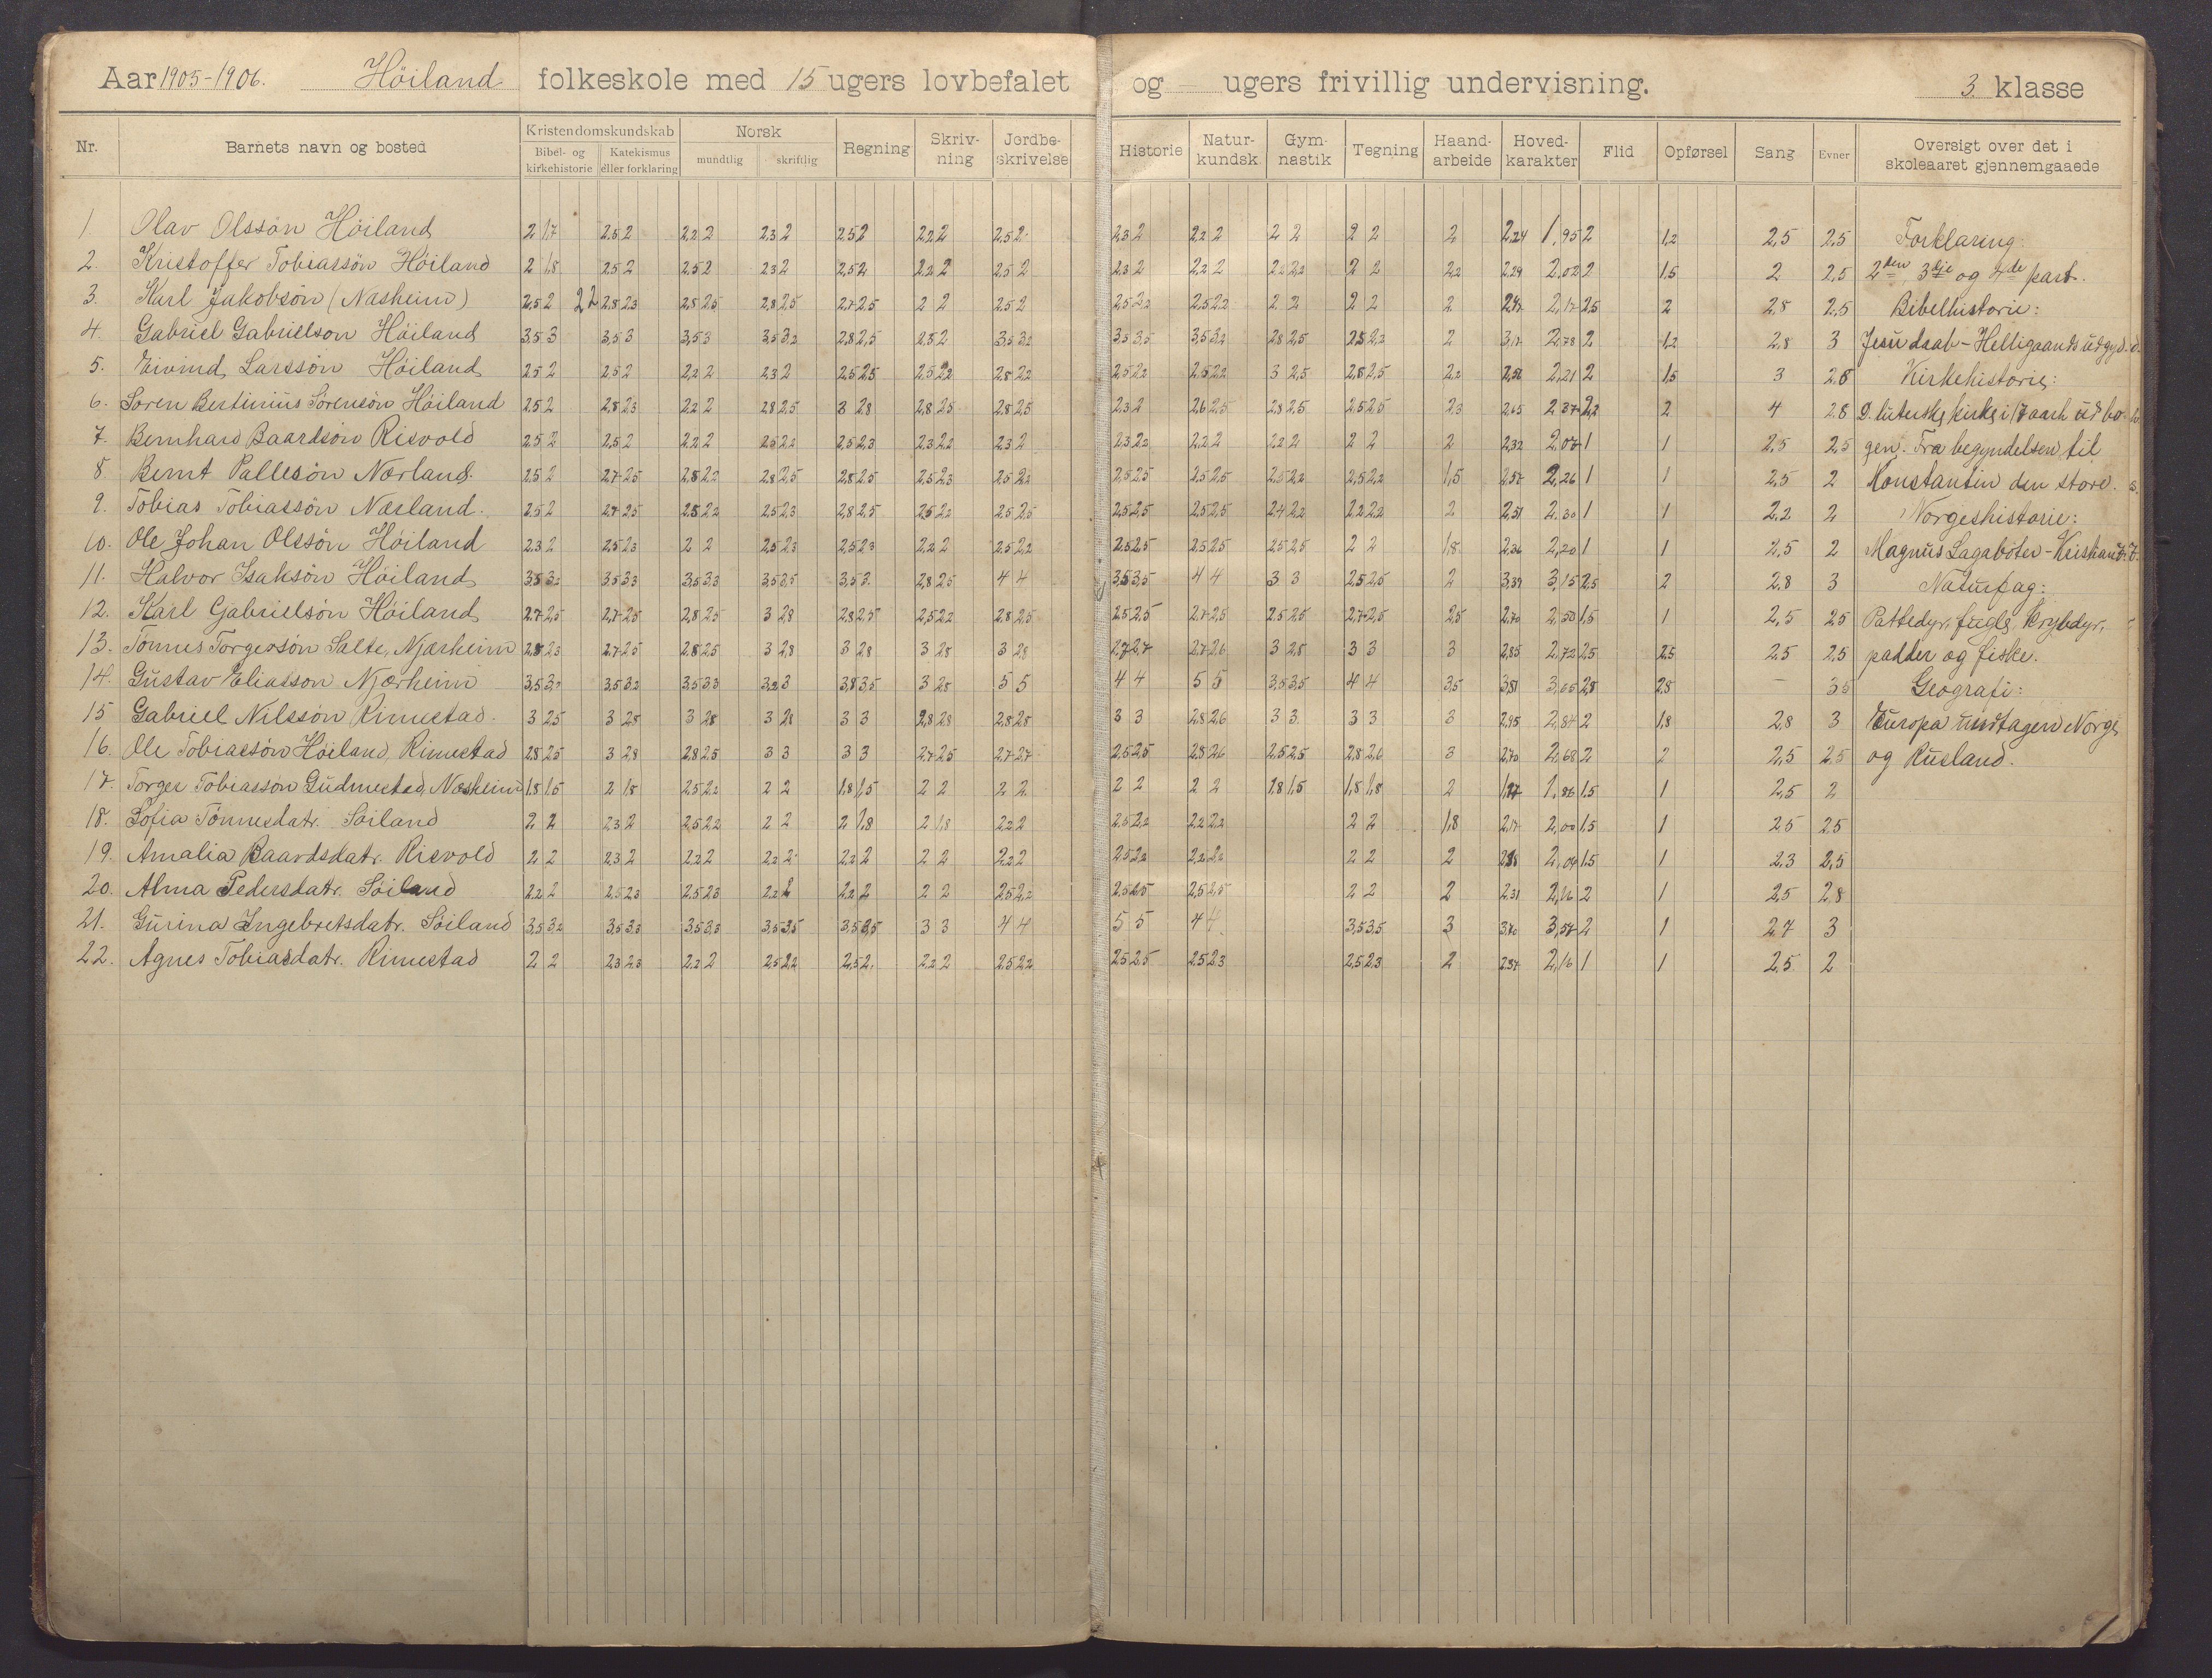 Aar 1905-1906. Höiland folkeskole med 15 ugers lovbefalet og — ugers frivillig undervisning. 3. klasse
Nr. Barnets navn og bosted Kristendomskundskab Norsk Regning Skriv-ning Jordbe-skrivelse Historie Natur-kundsk. Gym-nastik Tegning Haand-arbeide Hoved-karakter Flid Opførsel Sang Evner Oversigt over det i skoleaaret gjennemgaaede
Bibel- og kirkehistorie Katekismus eller forklaring mundtlig skriftlig
1. Olav Olssön Höiland 2 1,7 2,5 2 2,2 2 2,3 2 2,5 2 2,2 2 2,5 2 2,3 2 2,2 2 2 2 2 2 2 2,24 1,95 2 1,2 2,5 2,5 Forklaring:
2. Kristoffer Tobiassön Höiland 2 1,8 2,5 2 2,5 2 2,3 2 2,5 2 2,2 2 2,5 2 2,3 2 2,2 2 2,2 2,2 2 2 2,2 2,29 2,02 2 1,5 2 2,5 2den 3dje og 4de part.
3. Karl Jakobsön (Nasheim) 2,5 2 2,2 2,8 2,3 2,8 2,5 2,8 2,5 2,7 2,5 2 2 2,5 2 2,5 2,2 2,5 2,2 2 2 2 2 2 2,47 2,17 2,5 2 2,8 2,5 Bibelhistorie:
4. Gabriel Gabrielson Höiland 3,5 3 3,5 3 3,5 3 3,5 3,2 2,8 2,5 2,5 2 3,5 3,2 3,5 3,5 3,5 3,2 2,8 2,5 2,5 2,2 2 3,17 2,78 2 1,2 2,8 3 Jesu daab - Helligaands udgyd.
5. Eivind Larssön Höiland 2,5 2 2,5 2 2,2 2 2,3 2 2,5 2,5 2,5 2,2 2,8 2,2 2,5 2,2 2,5 2,2 3 2,5 2,8 2,5 2,2 2,52 2,21 2 1,5 3 2,8 Kirkehistorie:
6. Sören Bertinius Sörensön Höiland 2,5 2 2,8 2,3 2,2 2 2,8 2,5 3 2,8 2,8 2,5 2,8 2,5 2,3 2 2,6 2,5 2,8 2,5 2,5 2,5 2,3 2,65 2,37 2,2 2 4 2,8 D. luterske kirke i 17 aarh ud bo-
7. Bernhard Baardsön Risvold 2,5 2 2,5 2 2,2 2 2,5 2,2 2,5 2,3 2,3 2,2 2,3 2 2,3 2,2 2,2 2 2,2 2 2 2 2 2,32 2,07 1 1 2,5 2,5 gen. Fra begyndelsen til
8. Bernt Pallesön Nærland. 2,5 2 2,7 2,5 2,8 2,2 2,8 2,5 2,8 2,5 2,5 2,3 2,5 2,2 2,5 2,5 2,5 2,5 2,5 2,2 2,5 2,2 1,5 2,57 2,26 1 1 2,5 2 Konstantin den store.
9. Tobias Tobiassön Nærland. 2,5 2 2,7 2,5 2,8 2,2 2,5 2,3 2,8 2,5 2,5 2,2 2,5 2,5 2,5 2,5 2,5 2,5 2,4 2,2 2,2 2,2 2 2,51 2,30 1 1 2,2 2 Norgeshistorie:
10. Ole Johan Olssön Höiland 2,3 2 2,5 2,3 2 2 2,5 2,3 2,5 2,3 2,2 2 2,5 2,2 2,5 2,5 2,5 2,5 2,5 2,5 2 2 1,8 2,36 2,20 1 1 2,5 2 Magnus Lagaböter -
11. Halvor Isaksön Höiland 3,5 3,2 3,5 3,3 3,5 3,3 3,5 3,5 3,5 3 2,8 2,5 4 4 3,5 3,5 4 4 3 3 2,5 2,5 2 3,39 3,15 2,5 2 2,8 3 Naturfag:
12. Karl Gabrielsön Höiland 2,7 2,5 2,7 2,5 2,8 2,5 3 2,8 2,8 2,5 2,5 2,2 2,8 2,5 2,5 2,5 2,7 2,5 2,5 2,5 2,7 2,5 2,5 2,70 2,50 1,5 1 2,5 2,5 Pattedyr, fugle, krybdyr,
13. Tönnes Torgersön Salte, Njærheim 2,8 2,3 2,7 2,5 2,8 2,5 3 2,8 3 2,8 3 2,8 3 2,8 2,7 2,7 2,7 2,6 3 2,8 3 3 3 2,85 2,72 2,5 2,5 2,5 2,5 padder og fiske.
14. Gustav Eliasson Njærheim 3,5 3,2 3,5 3,2 3,5 3,3 3,2 3 3,8 3,5 3 2,8 5 5 4 4 5 5 3,5 3,5 4 4 3,5 3,81 3,65 2,8 2,8 — 3,5 Geografi:
15 Gabriel Nilssön Rimestad. 3 2,5 3 2,8 3 2,8 3 2,8 3 3 2,8 2,8 2,8 2,8 3 3 2,8 2,6 3 3 3 3 3 2,95 2,84 2 1,8 2,8 3 Europa undtagen Norge
16. Ole Tobiassön Höiland, Rimestad 2,8 2,5 3 2,8 2,8 2,5 3 3 3 3 2,7 2,5 2,7 2,7 2,5 2,5 2,8 2,6 2,5 2,5 2,8 2,6 3 2,70 2,68 2 2 2,5 2,5 og Rusland.
17. Torger Tobiassön Gudmestad, Næsheim 1,8 1,5 2 1,8 2,5 2,2 2 2 1,8 1,5 2 2 2 2 2 2 2 2 1,8 1,5 1,8 1,8 2 1,97 1,86 1,5 1 2,5 2
18. Sofia Tönnesdatr. Söiland 2 2 2,3 2 2,5 2,2 2 2 2 1,8 2 1,8 2,2 2 2,5 2,2 2,2 2,2 2 2 1,8 2,17 2,00 1,5 1 2,5 2,5
19. Amalia Baardsdatr. Risvold 2 2 2,3 2 2,2 2 2,2 2 2,2 2 2 2 2,2 2 2,5 2,2 2,2 2,2 2 2 2 2,04 1,5 1 2,3 2,5
20. Alma Pedersdatr. Söiland 2,2 2 2,5 2,3 2,5 2,3 2,2 2 2,2 2 2 2 2,5 2,2 2,5 2,5 2,5 2,5 2 2 2 2,31 2,16 2 1 2,5 2,8
21. Gurina Ingebretsdatr. Söiland 3,5 3,2 3,5 3,3 3,5 3,3 3,5 3,5 3,5 3,5 3 3 4 4 5 5 4 4 3,5 3,5 3 3,70 3,57 2 1 2,7 3
22. Agnes Tobiasdatr. Rimestad 2 2 2,3 2,3 2,2 2 2,5 2,2 2,5 2 2,2 2 2,5 2,2 2,5 2,5 2,5 2,3 2,5 2,3 2 2,37 2,16 1 1 2,5 2